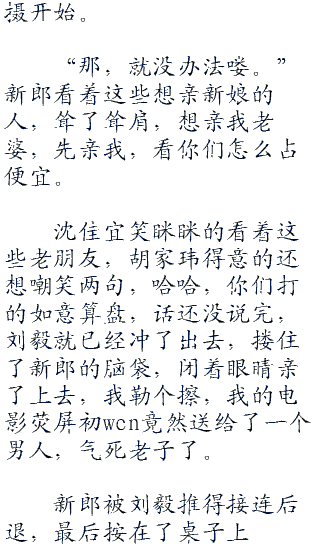 摄开始。
“那，就没办法喽。”
新郎看着这些想亲新娘的
人，耸了耸肩，想亲我老
婆，先亲我，看你们怎么占
便宜。
沈佳宜笑眯眯的看着这
些老朋友，胡家玮得意的还
想嘲笑两句，哈哈，你们打
的如意算盘，话还没说完，
刘毅就已经冲了出去，搂住
了新郎的脑袋，闭着眼睛亲
了上去，我勒个擦，我的电
影荧屏初wcn竟然送给了一个
男人，气死老子了。
新郎被刘毅推得接连后
退，最后按在了桌子上